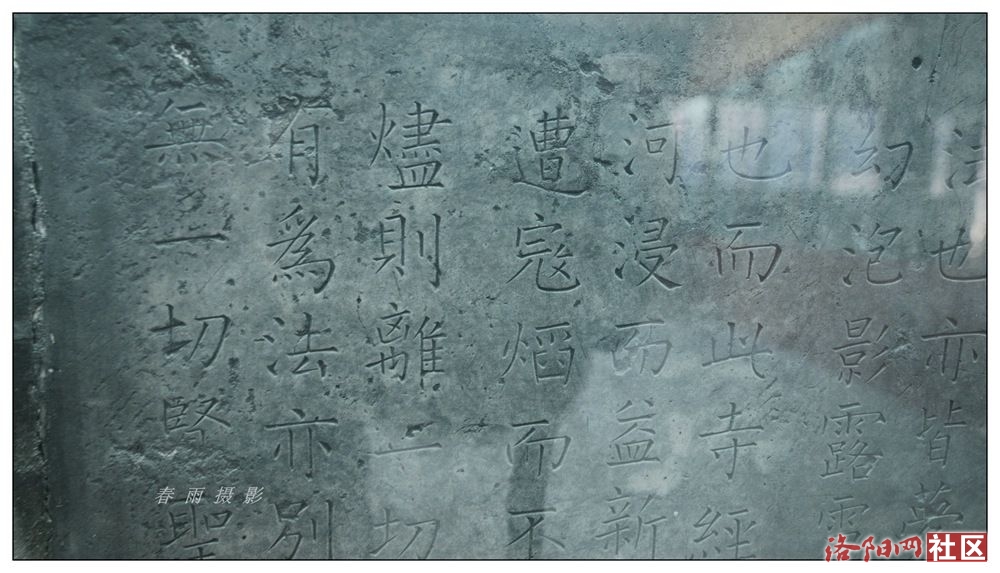 法也亦皆夢
幻泡影露電
也而此寺經
河浸而益新
遭寇熖而不
燼則離一切
有爲法亦別
無一切賢聖
春雨摄影
洛阳网社区